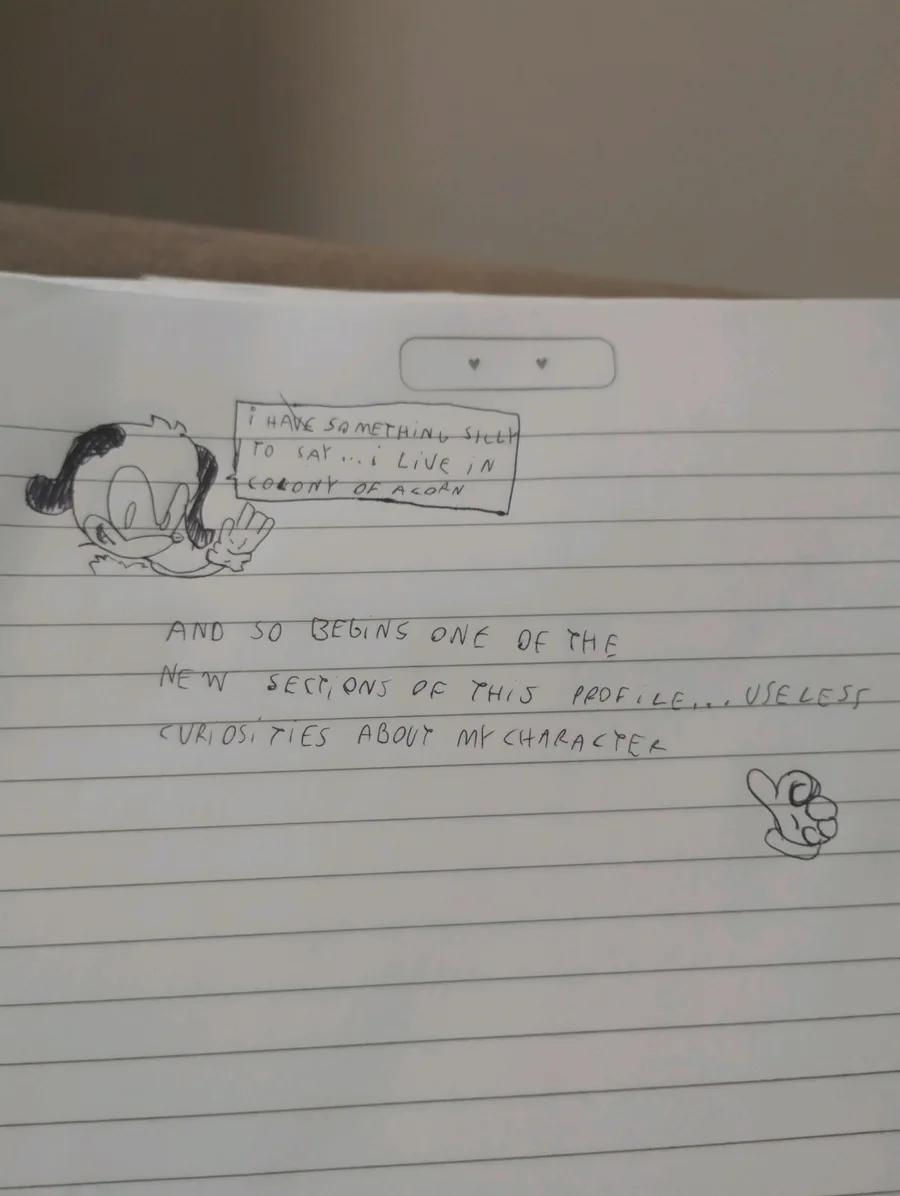 i HAVE SOMETHiNG SiLLY
TO SAY...i LiVE iN
COLONY OF ACORN
AND SO BEGiNS ONE OF THE
NEW SECTiONS OF THiS PROFiLE...USELESS
CURiOSiTiES ABOUT MY CHARACTER